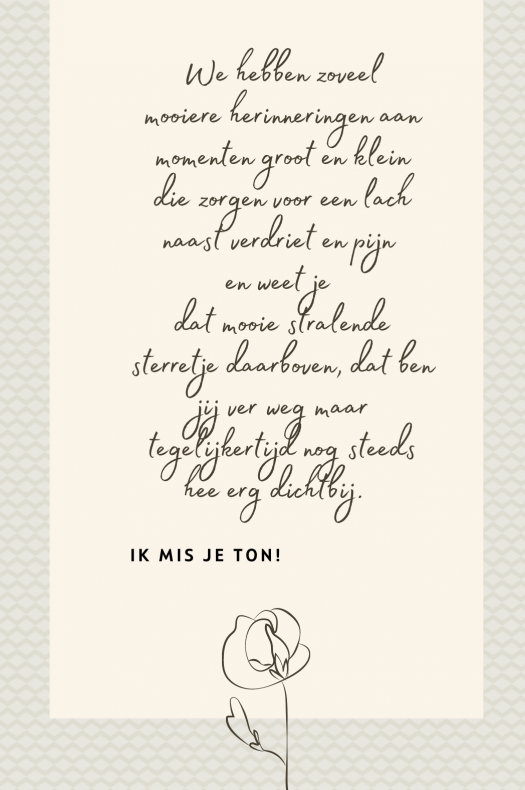 We hebben zoveel
mooiere herinneringen aan
momenten groot en klein
die zorgen voor een lach
naast verdriet en pijn
en weet je
dat mooie stralende
sterretje daarboven, dat ben
jij ver weg maar
tegelijkertijd nog steeds
hee erg dichtbij.
IK MIS JE TON!